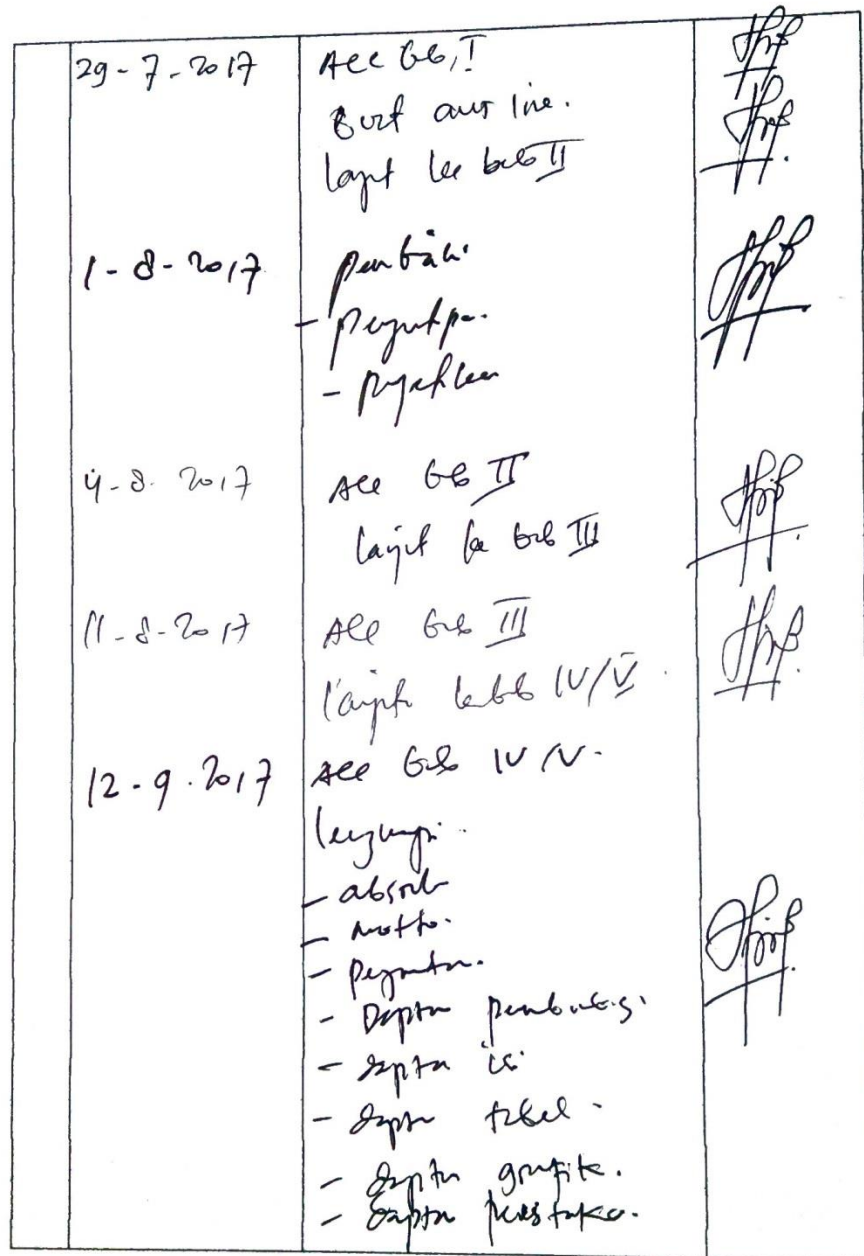 29-7-2017 Acc bab I
Buat out line.
lanjut ke bab II
1-8-2017 perbaiki
-
-
4-8-2017 Acc bab II
lanjut ke bab III
11-8-2017 Acc bab III
lanjut ke bab IV/V.
12-9-2017 Acc bab IV/V.
lengkapi.
- abstrak
- motto.
-
- Daptar
- daptar isi
- daptar tabel.
- daptar grafik.
- daptar pustaka.